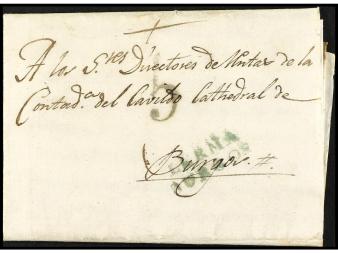 A los S.res Directores de Rentas de la
Contad.a del Cavildo Cathedral de
5
Burgos